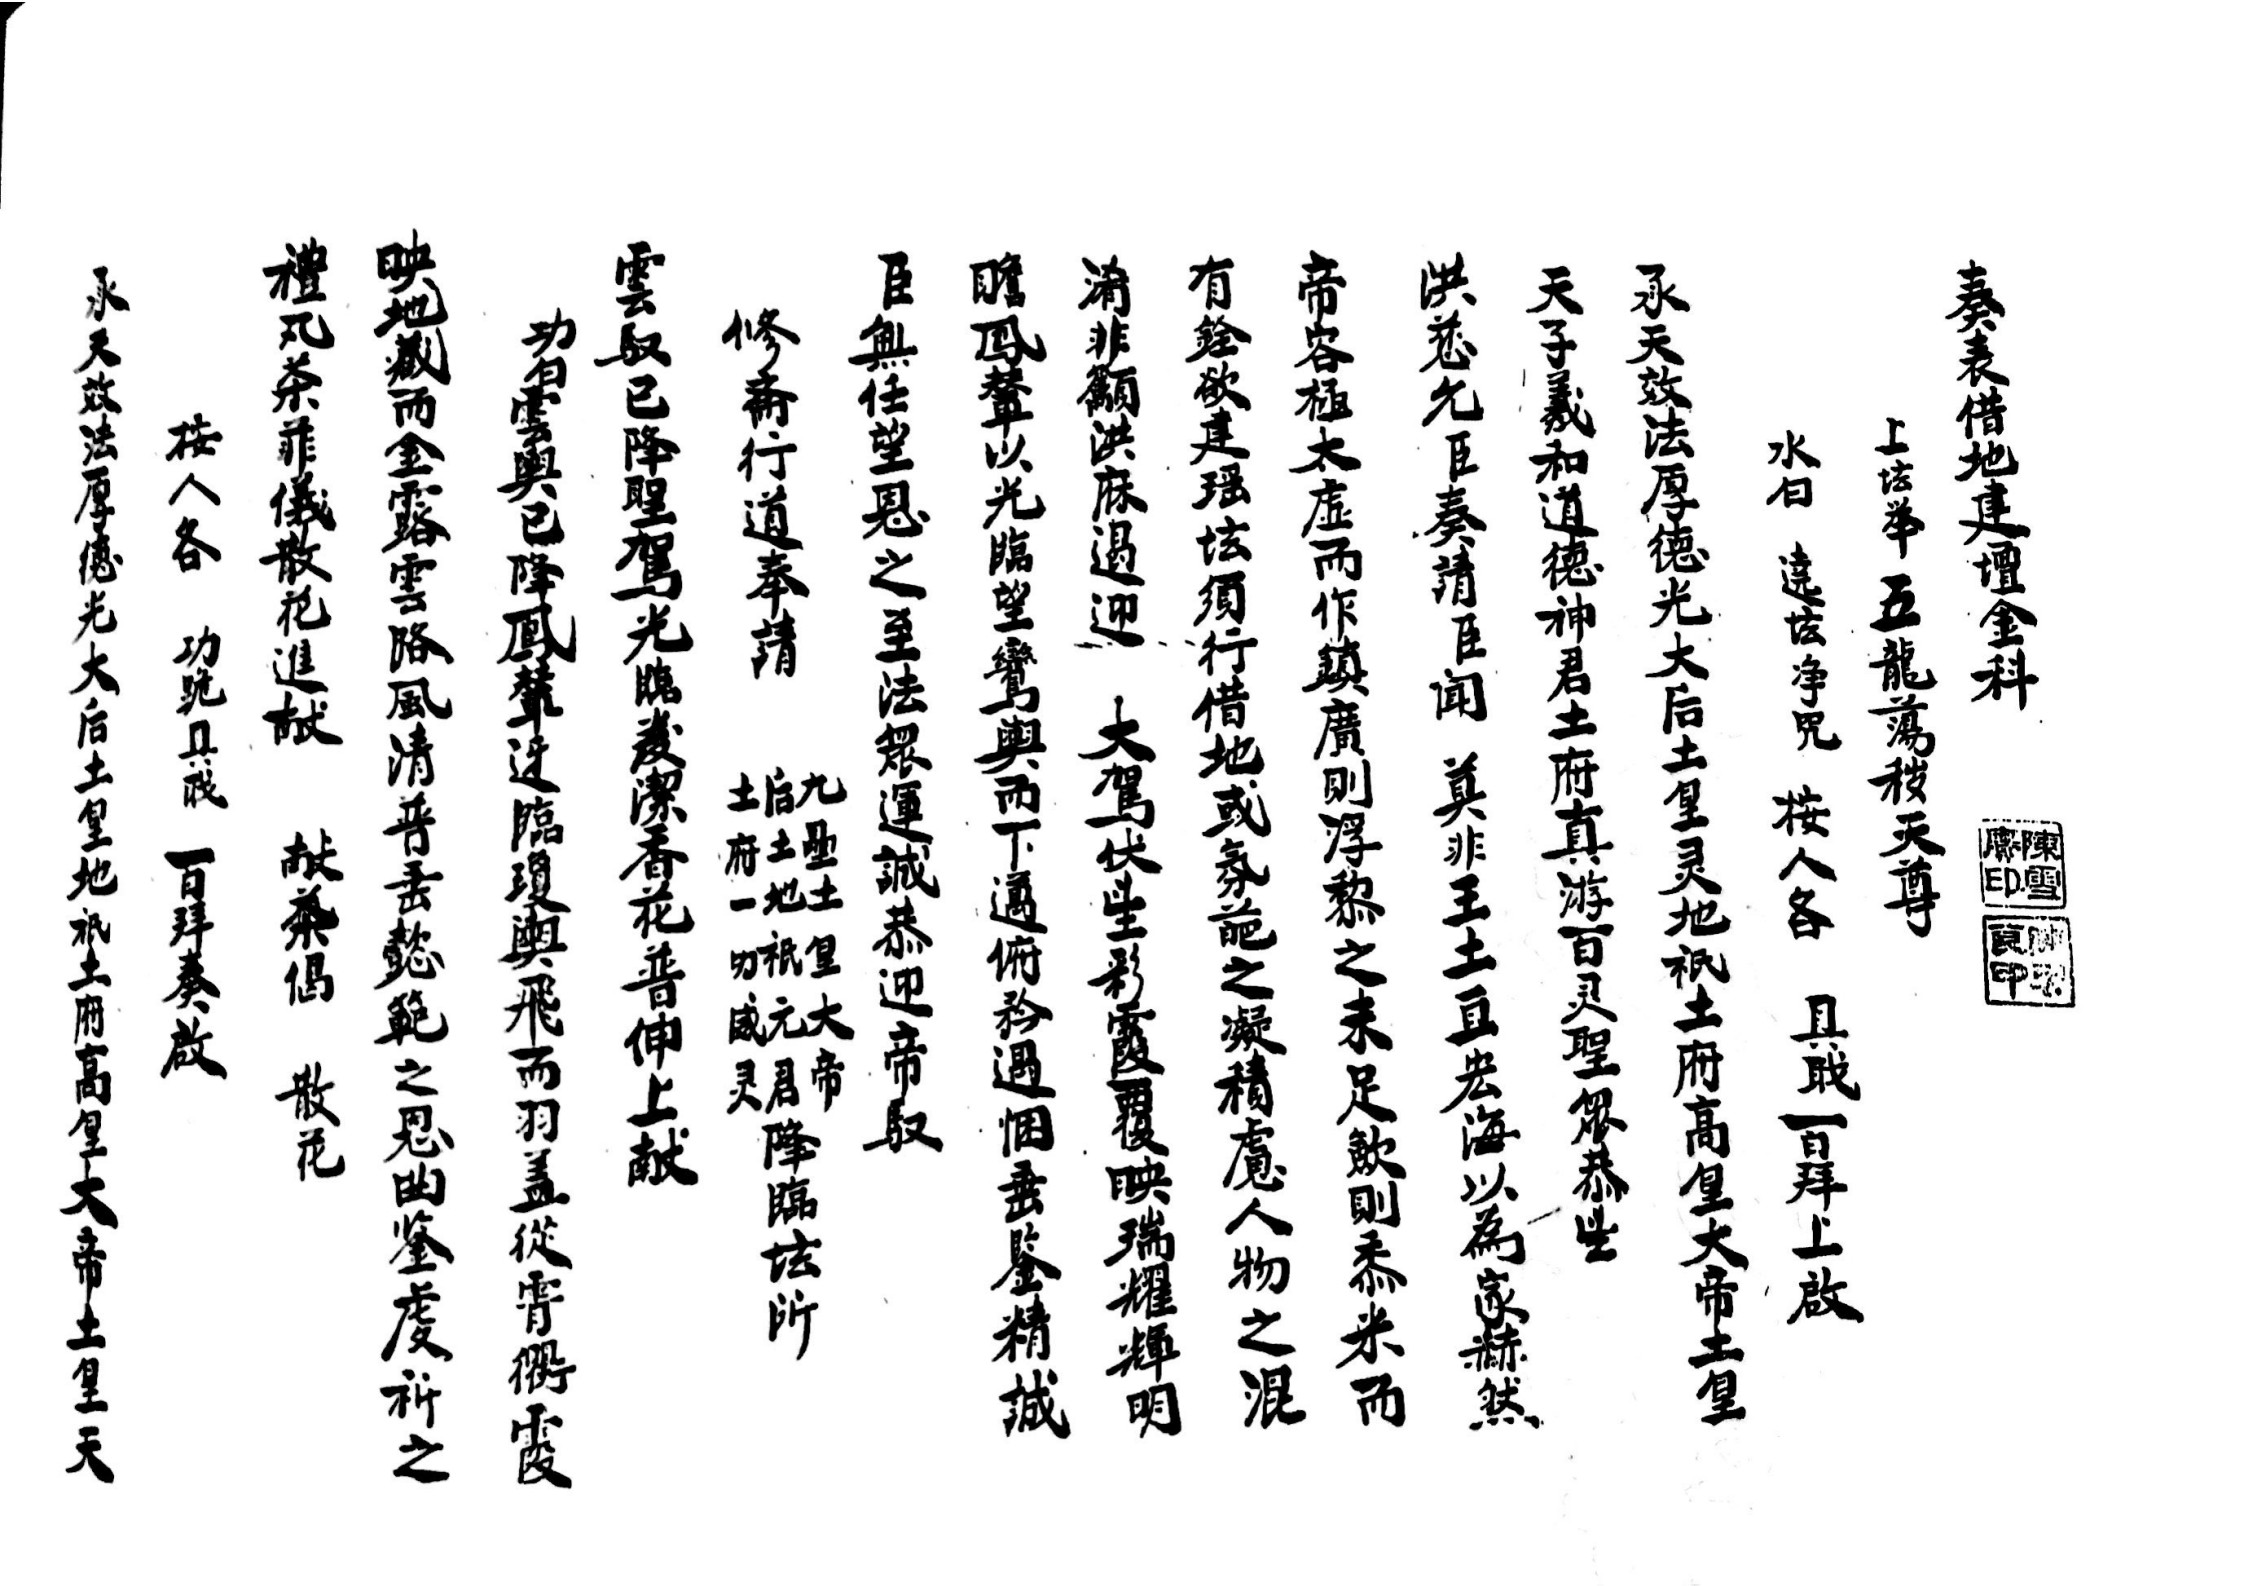 奏表借地建壇金科
上坛举 五龍蕩秽天尊
水白 遶坛净咒 按人各 具戝 一百拜上啟
承天效法厚德光大后土皇灵地祇土府高皇大帝土皇
天子羲和道德神君土府真游百灵聖眾恭望
洪慈允臣奏請臣闻 莫非王土亘宏海以為家赫然
帝容極太虛而作鎮廣則浮黎之未足歛則黍米而
有銓欲建瑶坛須行借地或氛葩之凝積慮人物之混
淆非籲洪庥遏迎 大駕伏望彩霞覆映瑞耀輝明
瞻鳳輦以光臨望鸞輿而下邁俯矜過悃垂鑒精誠
臣無任望恩之至法眾運誠恭迎帝馭
修斋行道奉請 九壘土皇大帝 后土地祇元君 土府一切威灵 降臨坛所
雲馭已降聖駕光臨虔潔香花普伸上献
功白雲輿已降鳳輦迓臨瓊輿飛而羽盖從霄衢霞
映地藏而金露雲路風清普垂懿範之恩曲鉴虔祈之
禮凡茶菲儀散花進献 献茶偈 散花
按人各 功號具戝 一百拜奏啟
承天效法厚德光大后土皇地祇土府高皇大帝土皇天
陳雪
印
印